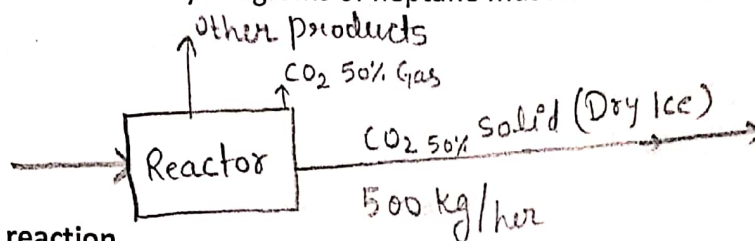 other products
CO2 50% Gas
Reactor
CO2 50% Solid (Dry Ice)
500 kg/her
reaction